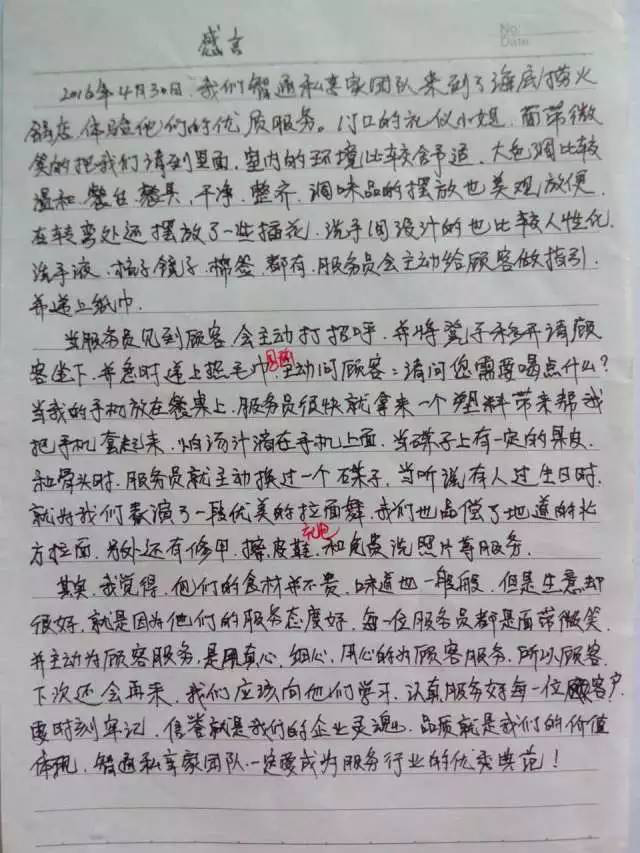 No:
Date
感言
2016年4月30日，我们智通私享家团队来到了海底捞火
锅店，体验他们的优质服务。门口的礼仪小姐，面带微
笑的把我们请到里面，室内的环境比较舒适，大色调比较
温和，餐台，餐具，干净，整齐，调味品的摆放也美观放便，
在转弯处还摆放了一些插花，洗手间设计的也比较人性化，
洗手液，梳子镜子，棉签，都有，服务员会主动给顾客做指引，
并递上纸巾。
当服务员见到顾客，会主动打招呼，并将凳子移开请顾
客坐下，并急时递上热毛巾，主动问顾客：请问您需要喝点什么？
当我的手机放在餐桌上，服务员很快就拿来一个塑料带来帮我
把手机套起来，怕汤汁溅在手机上面，当碟子上有一定的果皮，
和骨头时，服务员就主动换过一个碟子，当听说有人过生日时，
就为我们表演了一段优美的拉面舞，我们也品偿了地道的长
方拉面，另外还有修甲，擦皮鞋，和免费洗照片等服务。
其实，我觉得，他们的食材并不贵，味道也一般般，但是生意却
很好，就是因为他们的服务态度好，每一位服务员都是面带微笑，
并主动为顾客服务，是用真心，细心，用心的为顾客服务，所以顾客
下次还会再来，我们应该向他们学习，认真服务好每一位客户，
要时刻牢记，信誉就是我们的企业灵魂，品质就是我们的价值
体现，智通私享家团队一定要成为服务行业的优秀典范！